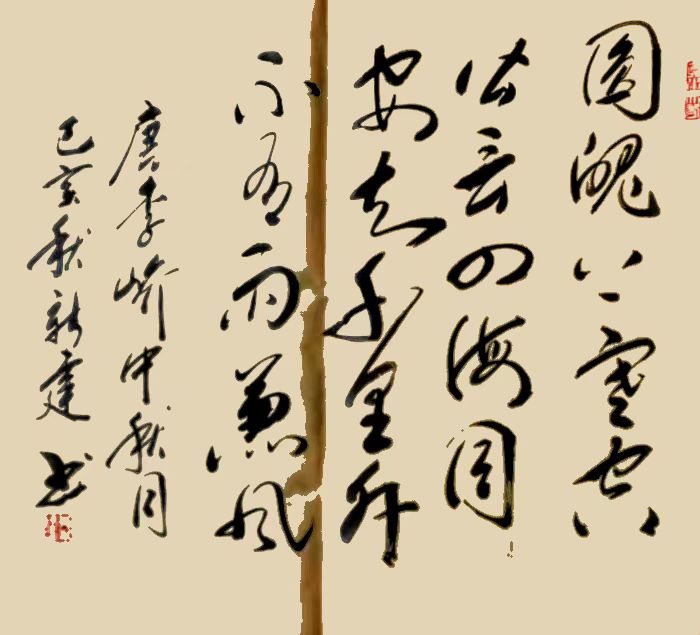 圆魄上寒空
皆言四海同
安知千里外
不有雨兼风
唐李峤中秋月
己亥秋新建书